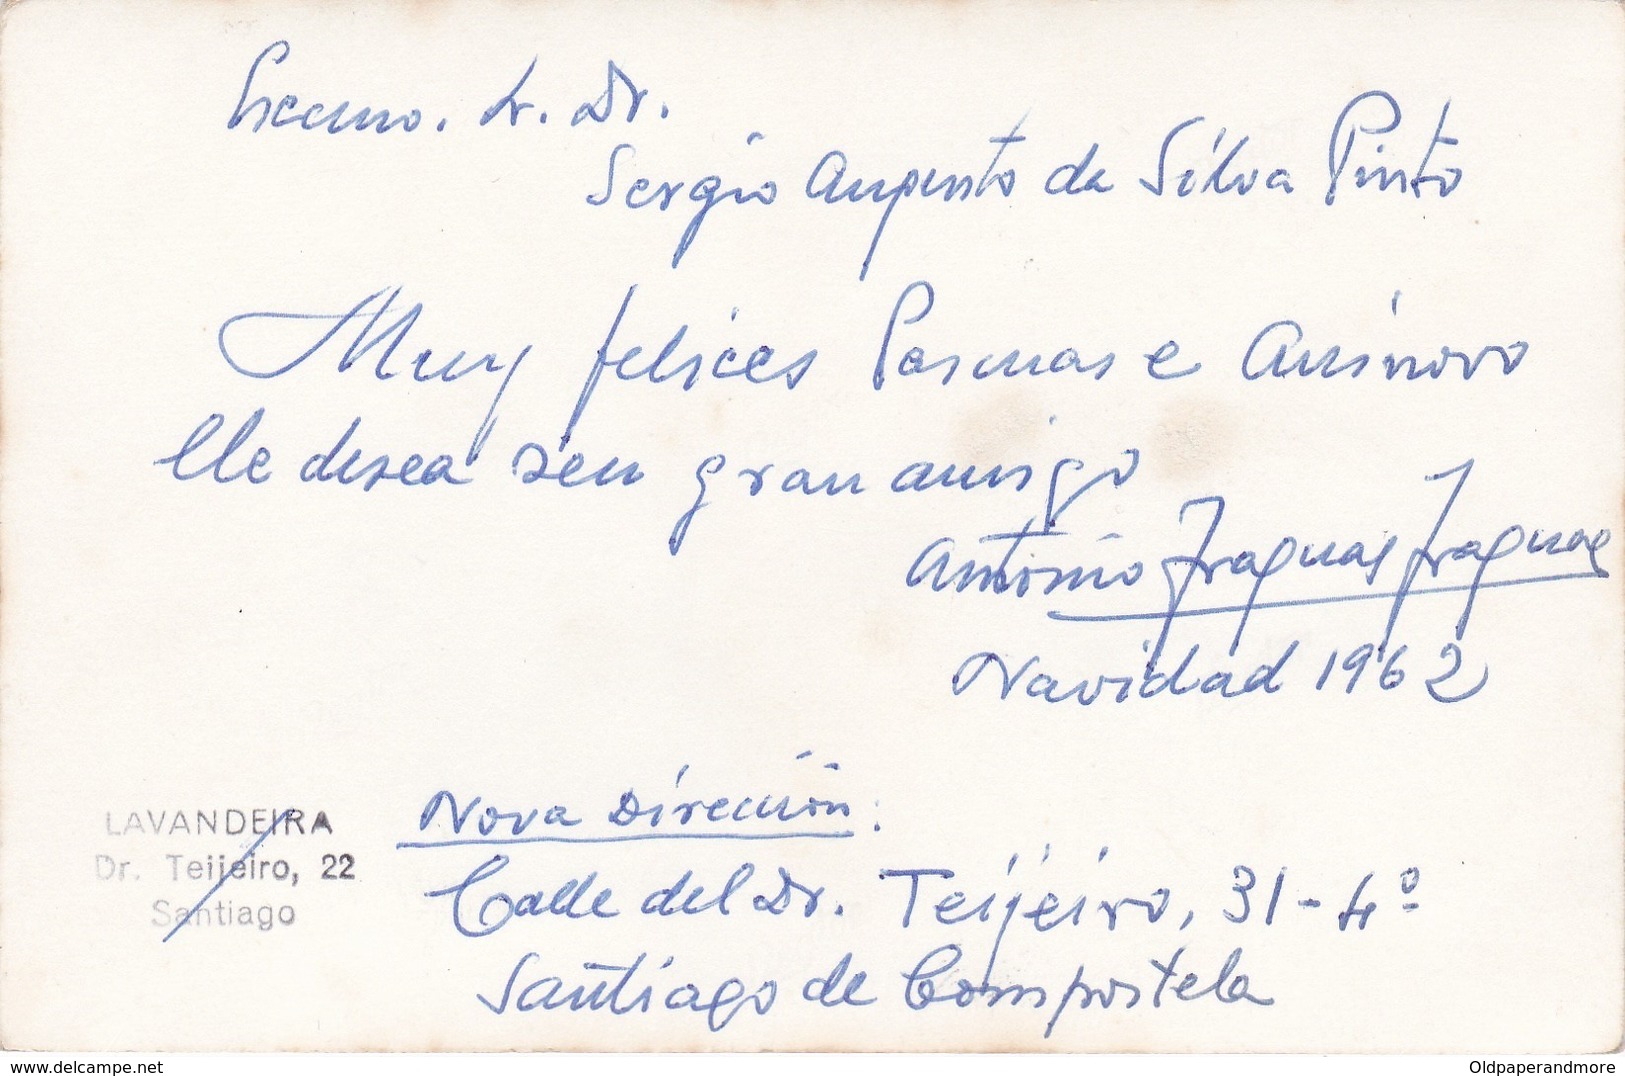 Excmo. Sr. Dr.
Sergio Augusto da Silva Pinto
Muy felices Pascuas e Aninovo
lle desea seu gran amigo
Antonio Fraguas Fraguas
Navidad 1962
LAVANDEIRA
Dr. Teijeiro, 22
Santiago
Nova Dirección:
Calle del Dr. Teijeiro, 31-4º
Santiago de Compostela
www.delcampe.net
Oldpaperandmore